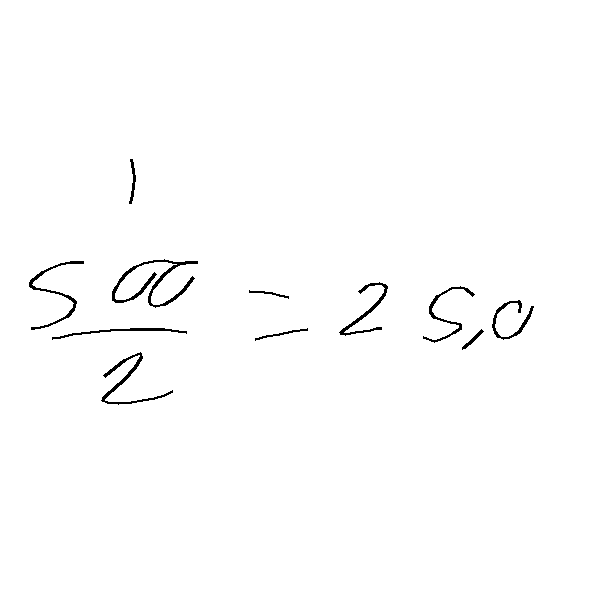 1
500
2
= 25,0